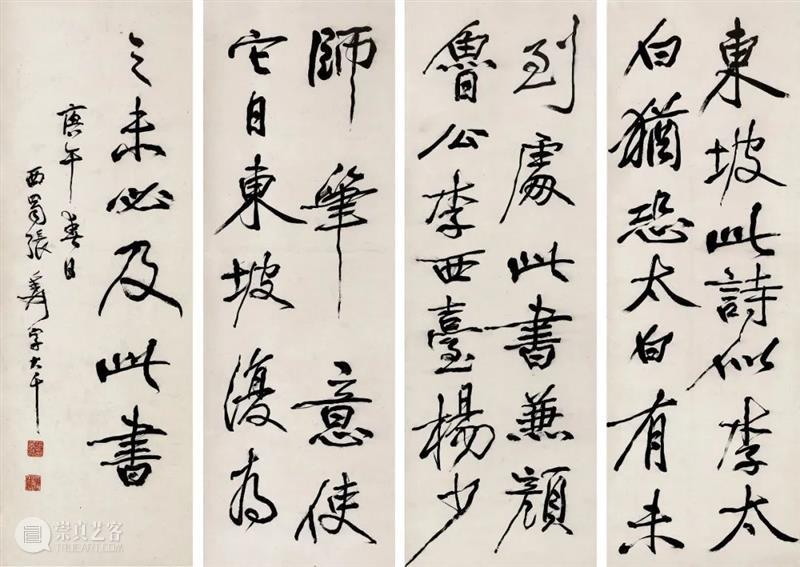 東坡此詩似李太
白猶恐太白有未
到處此書兼顏
魯公李西臺楊少
師筆意使
它自東坡復為
之未必及此書
庚午春日
西蜀張爰字大千
崇真艺客
TRUEART.COM